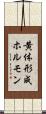 黄体形成
ホルモン